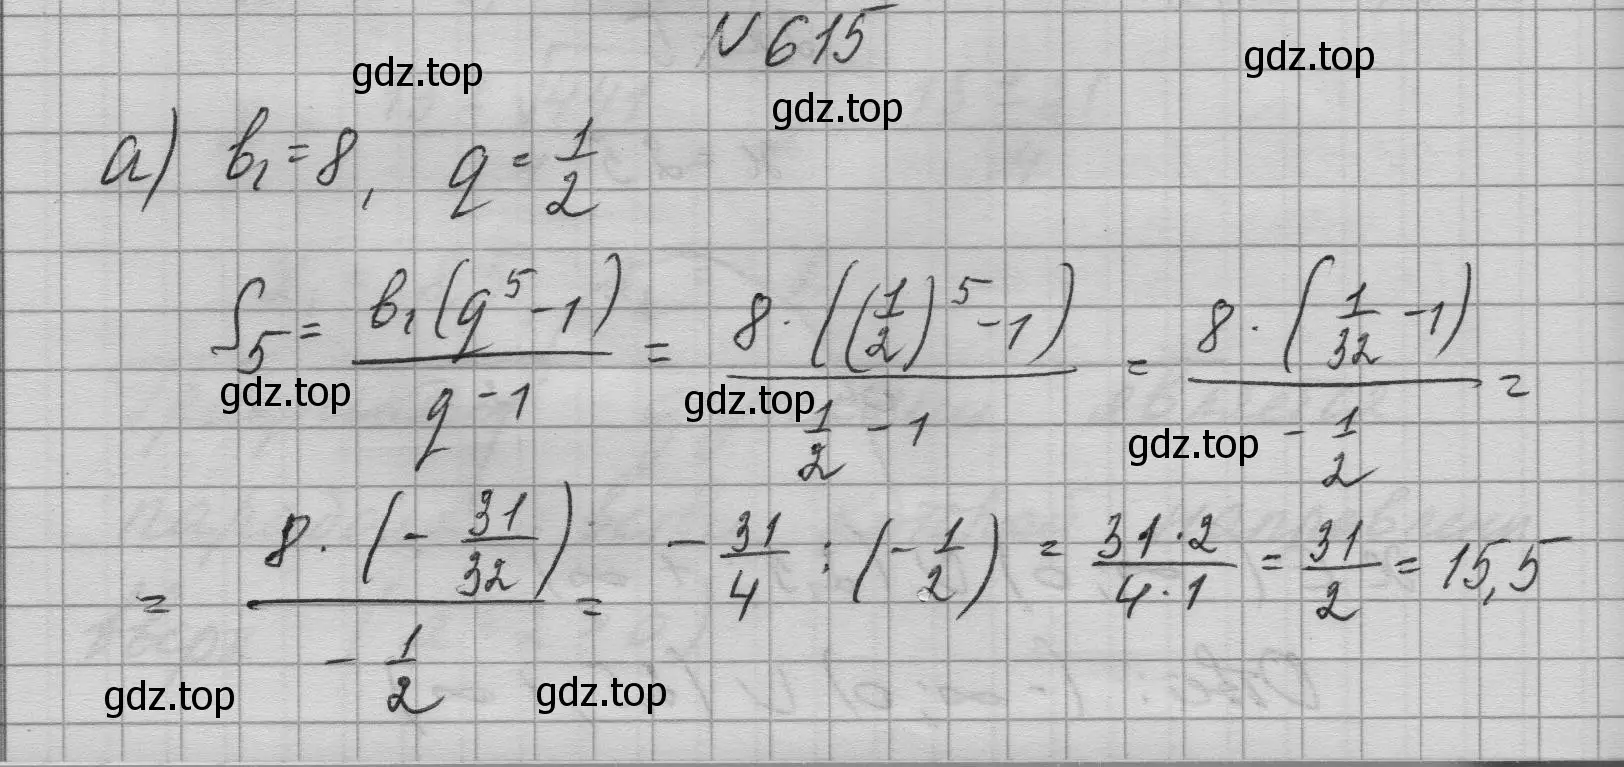 N 615
gdz.top gdz.top gdz.top
а) b₁ = 8, q = 1/2
S₅ = b₁(q⁵ - 1)/(q - 1) = 8 · ((1/2)⁵ - 1)/(1/2 - 1) = 8 · (1/32 - 1)/(- 1/2) =
gdz.top gdz.top gdz.top
= 8 · (- 31/32)/(- 1/2) = - 31/4 : (- 1/2) = 31 · 2/4 · 1 = 31/2 = 15,5
gdz.top gdz.top